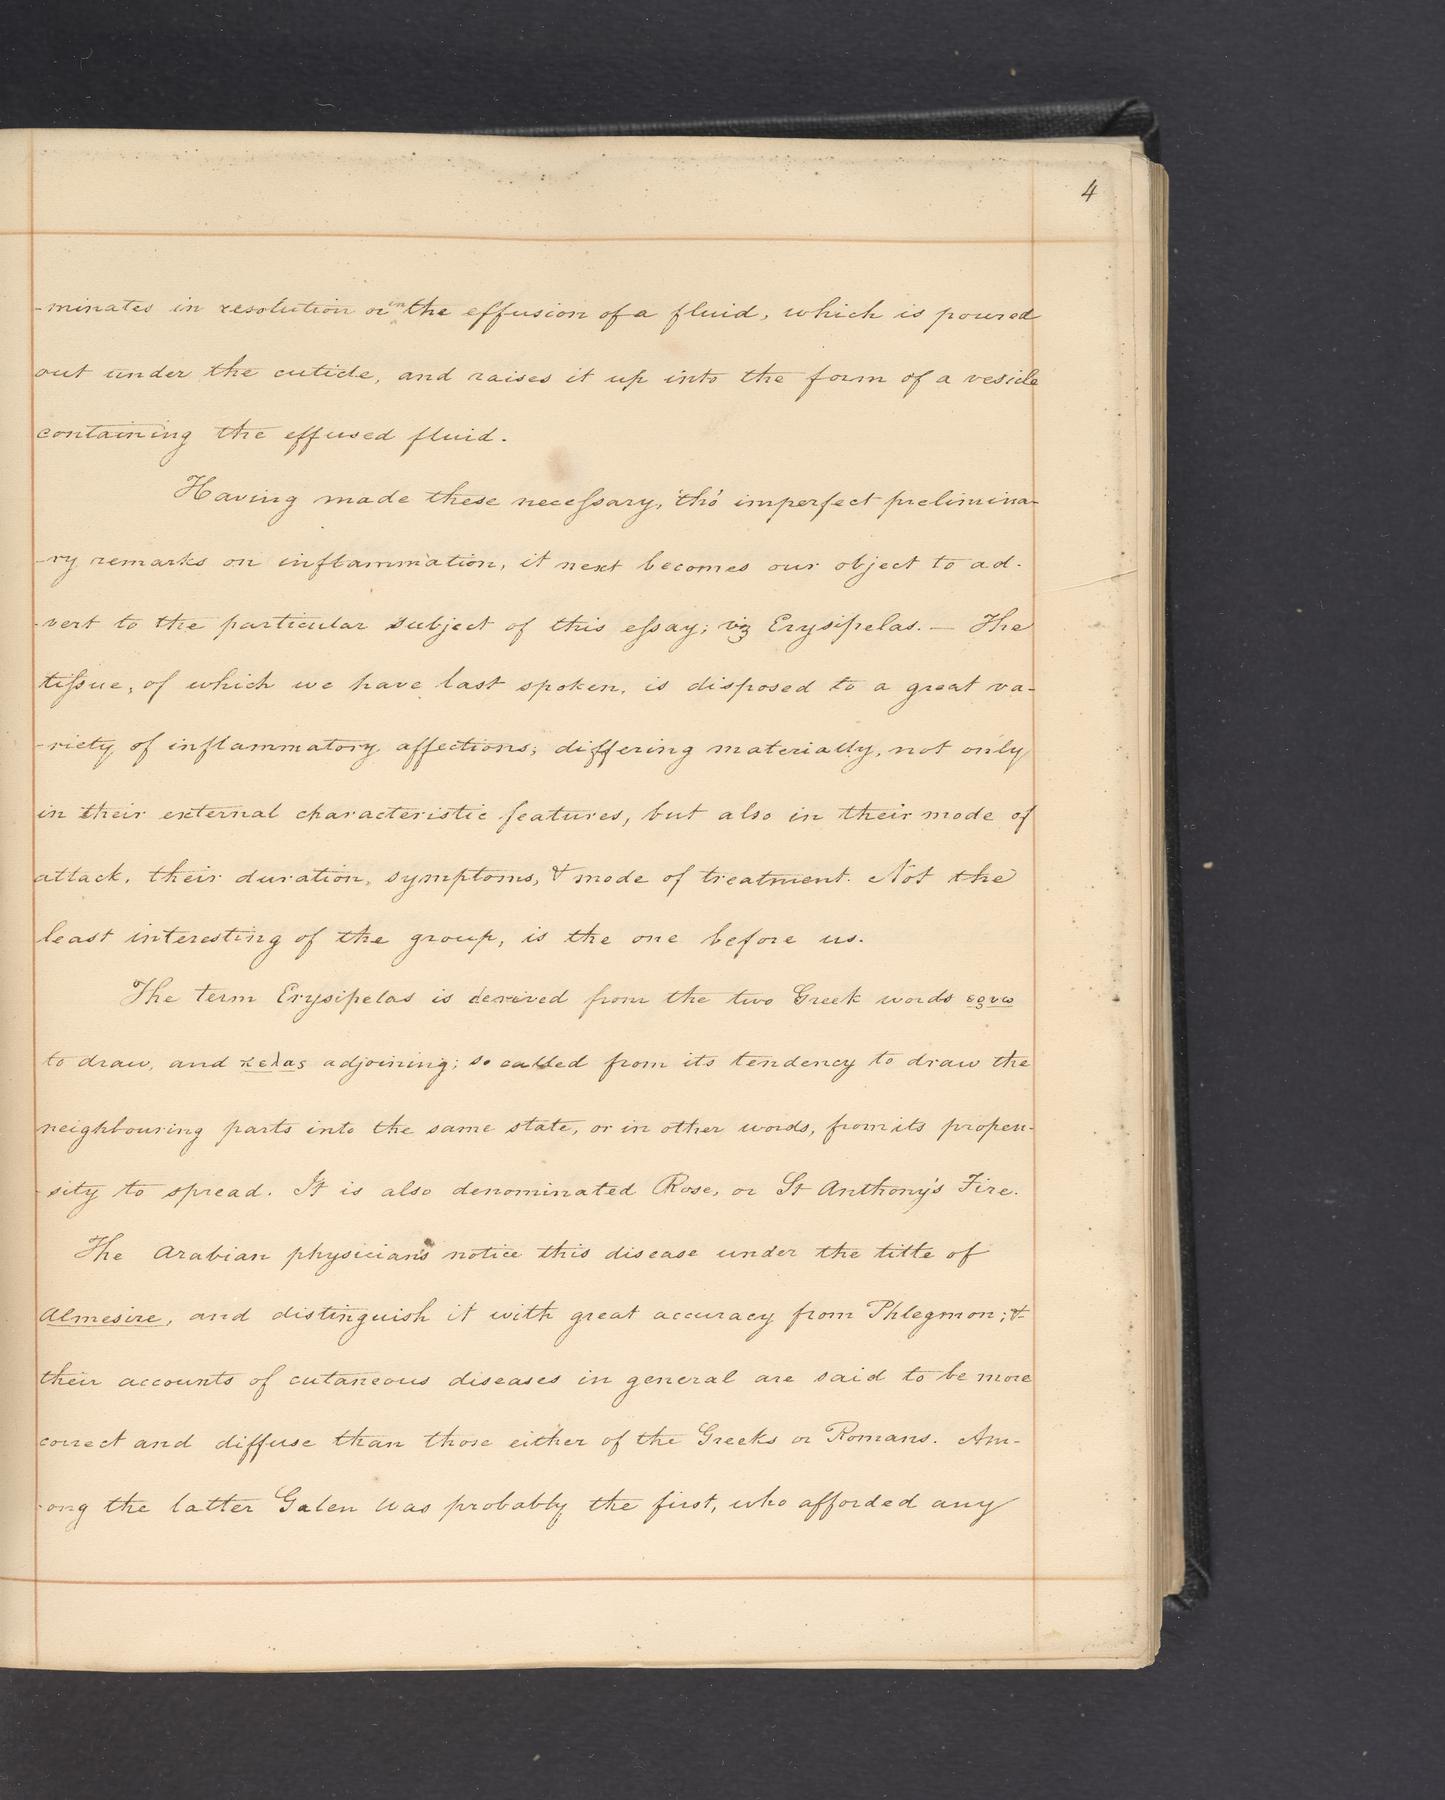 4
-minates in resolution or in the effusion of a fluid, which is poured
out under the cuticle, and raises it up into the form of a vesicle
containing the effused fluid.
Having made these necessary, tho' imperfect prelimina-
-ry remarks on inflammation, it next becomes our object to ad-
-vert to the particular subject of this essay; viz Erysipelas. — The
tissue, of which we have last spoken, is disposed to a great va-
-riety of inflammatory affections; differing materially, not only
in their external characteristic features, but also in their mode of
attack, their duration, symptoms, & mode of treatment. Not the
least interesting of the group, is the one before us.
The term Erysipelas is derived from the two Greek words ερυω
to draw, and πελας adjoining; so called from its tendency to draw the
neighbouring parts into the same state, or in other words, from its propen-
-sity to spread. It is also denominated Rose, or St Anthony's Fire.
The Arabian physicians notice this disease under the title of
Almesire, and distinguish it with great accuracy from Phlegmon; &
their accounts of cutaneous diseases in general are said to be more
correct and diffuse than those either of the Greeks or Romans. Am-
-ong the latter Galen was probably the first, who afforded any